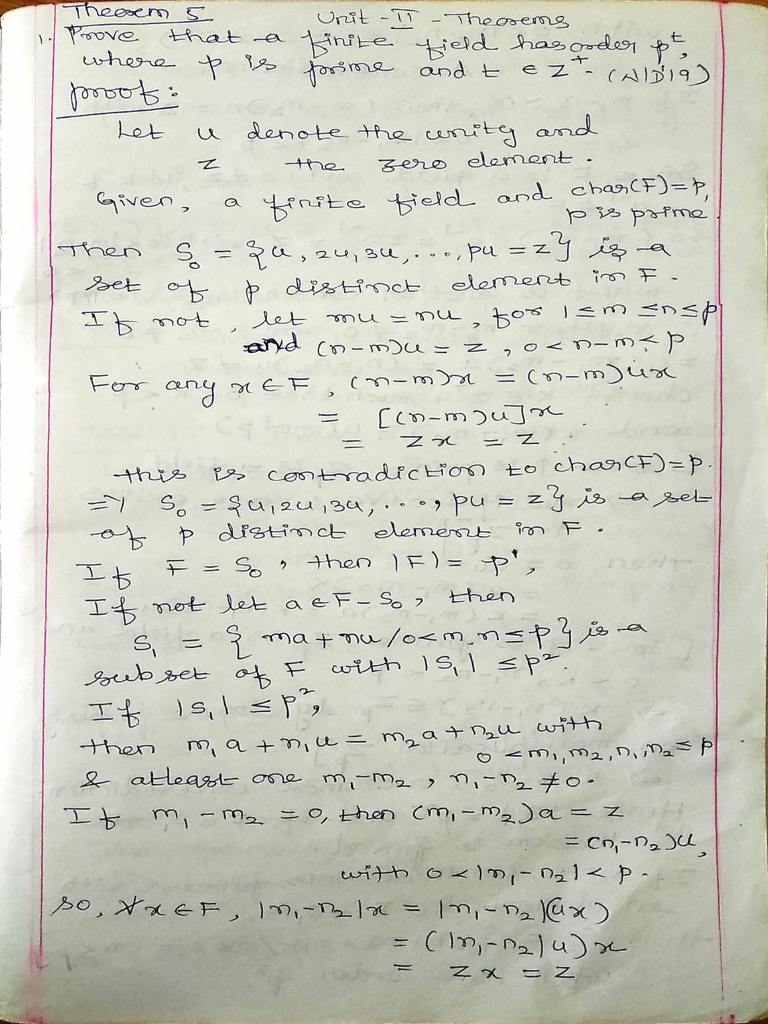 Theorem 5
Unit - II - Theorems
1. Prove that a finite field has order p^t,
where p is prime and t ∈ Z⁺. (N/D'19)
proof:
Let u denote the unity and
z the zero element.
Given, a finite field and char(F) = p,
p is prime.
Then S₀ = {u, 2u, 3u, ..., pu = z} is a
set of p distinct element in F.
If not, let mu = nu, for 1 ≤ m ≤ n ≤ p
and (n-m)u = z, 0 < n-m < p
For any x ∈ F, (n-m)x = (n-m)ux
= [(n-m)u]x
= zx = z.
this is contradiction to char(F) = p.
=> S₀ = {u, 2u, 3u, ..., pu = z} is a set
of p distinct element in F.
If F = S₀, then |F| = p¹,
If not let a ∈ F - S₀, then
S₁ = { ma + nu / 0 < m, n ≤ p } is a
subset of F with |S₁| ≤ p².
If |S₁| ≤ p²,
then m₁a + n₁u = m₂a + n₂u with
0 < m₁, m₂, n₁, n₂ ≤ p
& atleast one m₁-m₂, n₁-n₂ ≠ 0.
If m₁ - m₂ = 0, then (m₁-m₂)a = z
= (n₁-n₂)u,
with 0 < |n₁-n₂| < p.
so, ∀x ∈ F, |n₁-n₂|x = |n₁-n₂|(ux)
= (|n₁-n₂|u)x
= zx = z